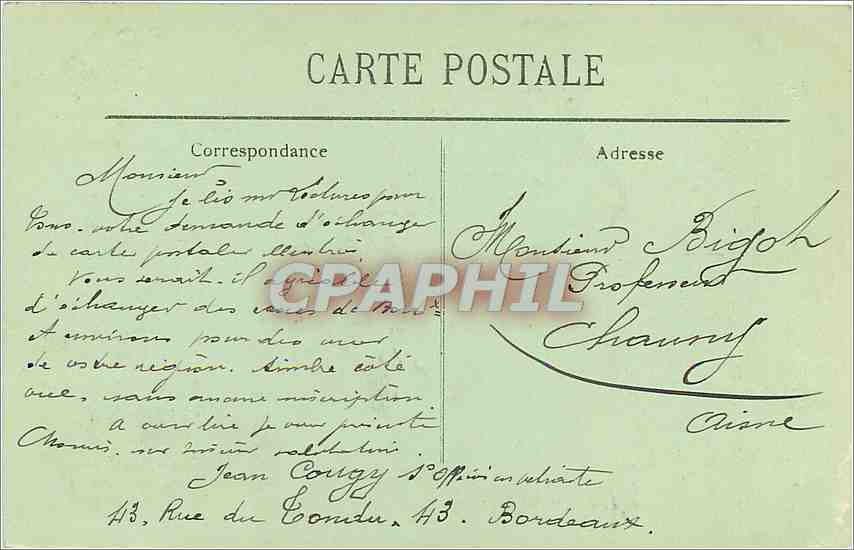 CARTE POSTALE
Correspondance
Monsieur
Je lis sur Lectures pour
Tous. votre demande d'échange
de cartes postales illustrées
Vous serait-il agréable
d'échanger des vues de Bordx
et environs pour des vues
de votre région. timbre côté
vue, sans aucune inscription
A vous lire je vous présente
Monsieur salutations.
Jean Cougy s Officier en retraite
43, Rue du Tondu. 43. Bordeaux.
Adresse
Monsieur Bigot
Professeur
Chauny
Aisne
CPAPHIL